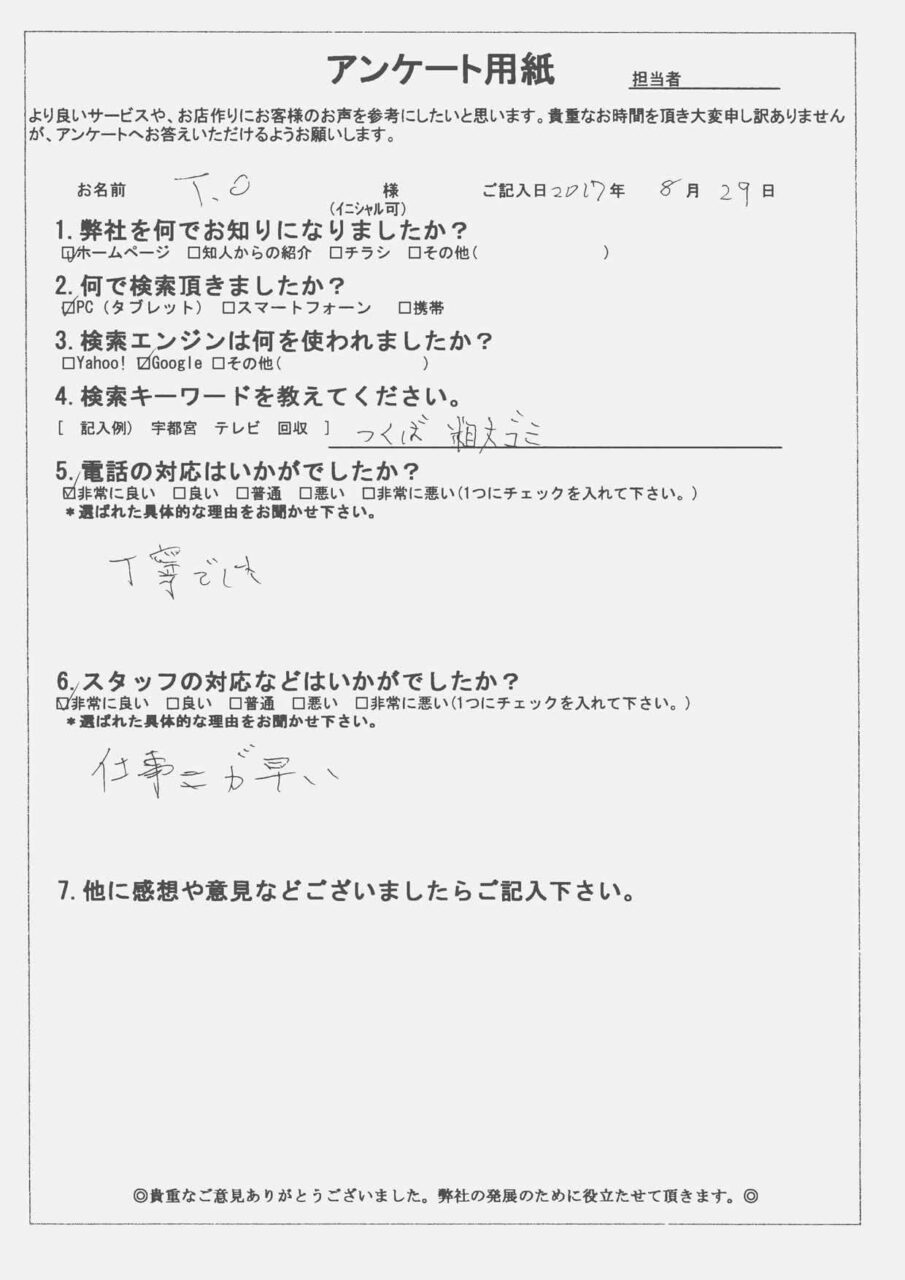 アンケート用紙
担当者
より良いサービスや、お店作りにお客様のお声を参考にしたいと思います。貴重なお時間を頂き大変申し訳ありません
が、アンケートへお答えいただけるようお願いします。
お名前 T.O 様 ご記入日2017年 8月 29日
(イニシャル可)
1. 弊社を何でお知りになりましたか？
☑ホームページ □知人からの紹介 □チラシ □その他( )
2. 何で検索頂きましたか？
☑PC（タブレット） □スマートフォーン □携帯
3. 検索エンジンは何を使われましたか？
□Yahoo! ☑Google □その他( )
4. 検索キーワードを教えてください。
[ 記入例） 宇都宮 テレビ 回収 ] つくば 粗大ゴミ
5. 電話の対応はいかがでしたか？
☑非常に良い □良い □普通 □悪い □非常に悪い(1つにチェックを入れて下さい。)
＊選ばれた具体的な理由をお聞かせ下さい。
丁寧でした
6. スタッフの対応などはいかがでしたか？
☑非常に良い □良い □普通 □悪い □非常に悪い(1つにチェックを入れて下さい。)
＊選ばれた具体的な理由をお聞かせ下さい。
仕事が早い
7. 他に感想や意見などございましたらご記入下さい。
◎貴重なご意見ありがとうございました。弊社の発展のために役立たせて頂きます。◎